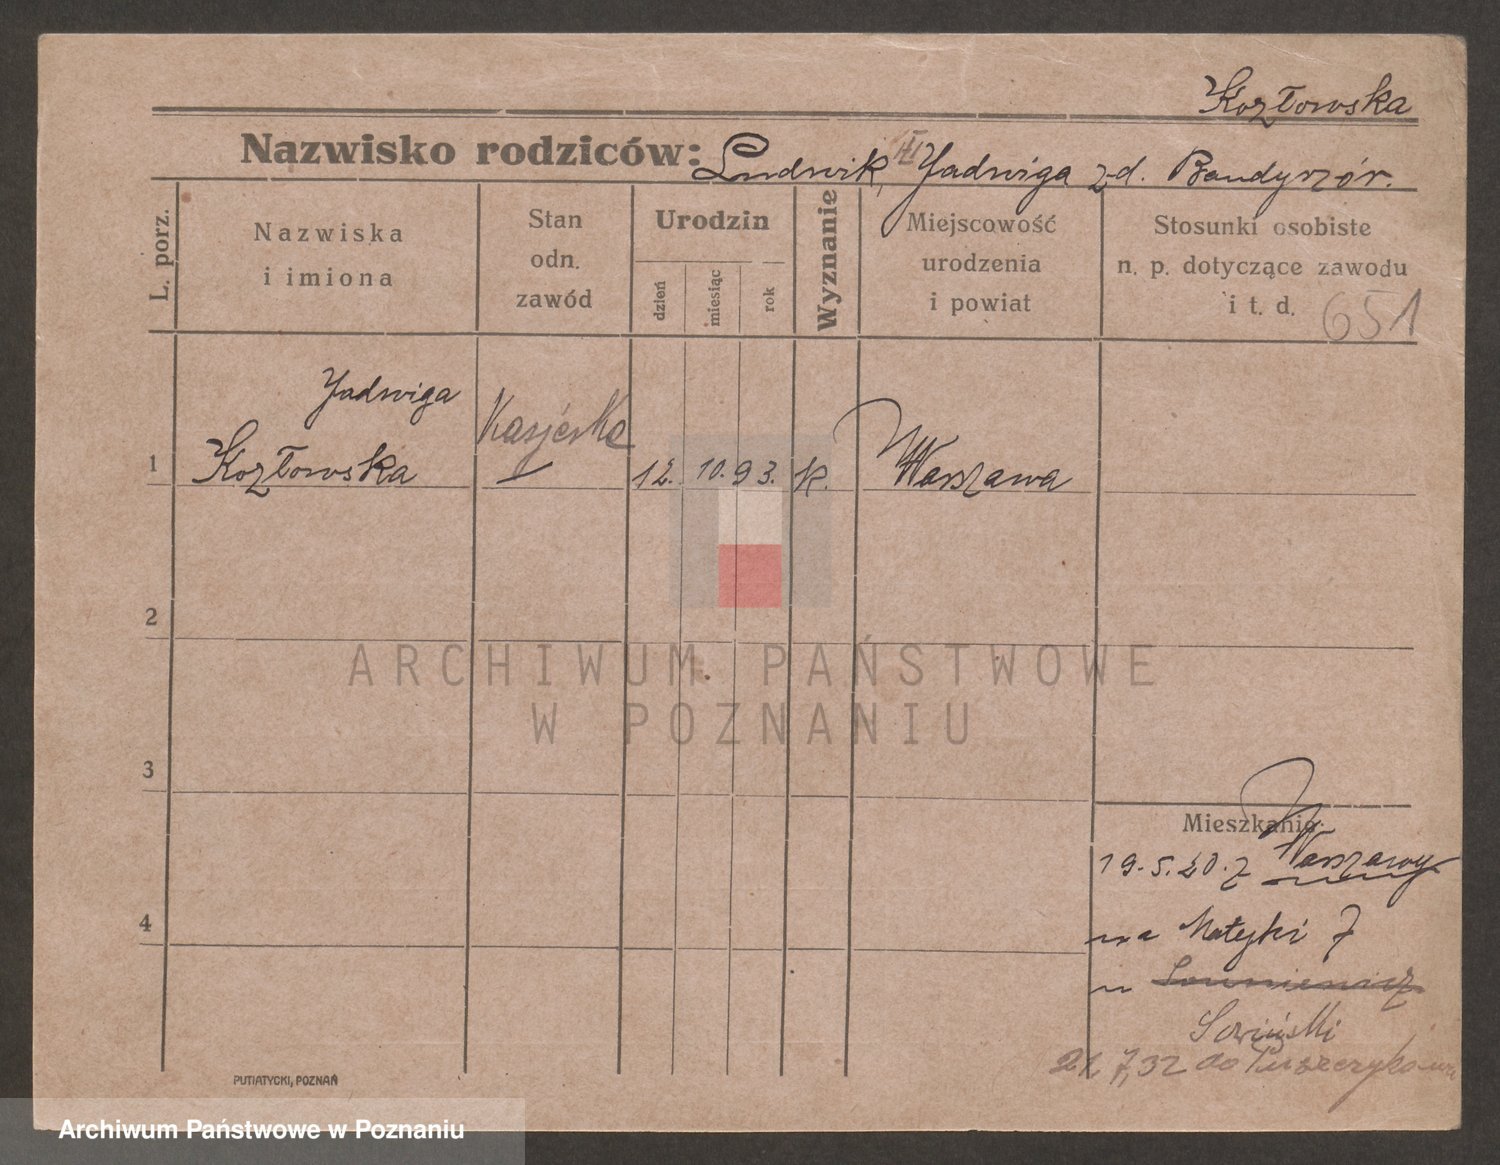 Kozłowska
Nazwisko rodziców: Ludwik, Jadwiga z d.
L. porz.
Nazwiska i imiona
Stan odn. zawód
Urodzin
dzień
miesiąc
rok
Wyznanie
Miejscowość urodzenia i powiat
Stosunki osobiste n. p. dotyczące zawodu i t. d.
651
Jadwiga
Kasjerka
1 Kozłowska 12. 10. 93. K. Warszawa
2
ARCHIWUM PAŃSTWOWE
W POZNANIU
3
Mieszkanie:
19.5.20. z Warszawy
4
na Matejki 7
u
Sowiński
21.7.32 do Puszczykowa
PUTIATYCKI, POZNAŃ
Archiwum Państwowe w Poznaniu